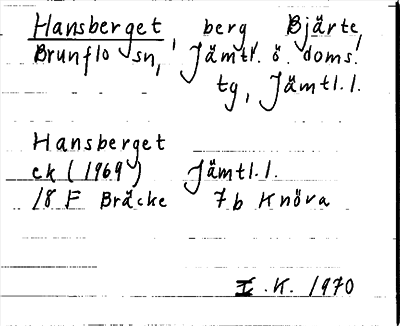 Hansberget, berg Bjärte,
Brunflo sn, Jämtl. ö. doms.
tg, Jämtl.l.
Hansberget
ek (1969) Jämtl.l.
18 F Bräcke 7b Knöva
I.K. 1970